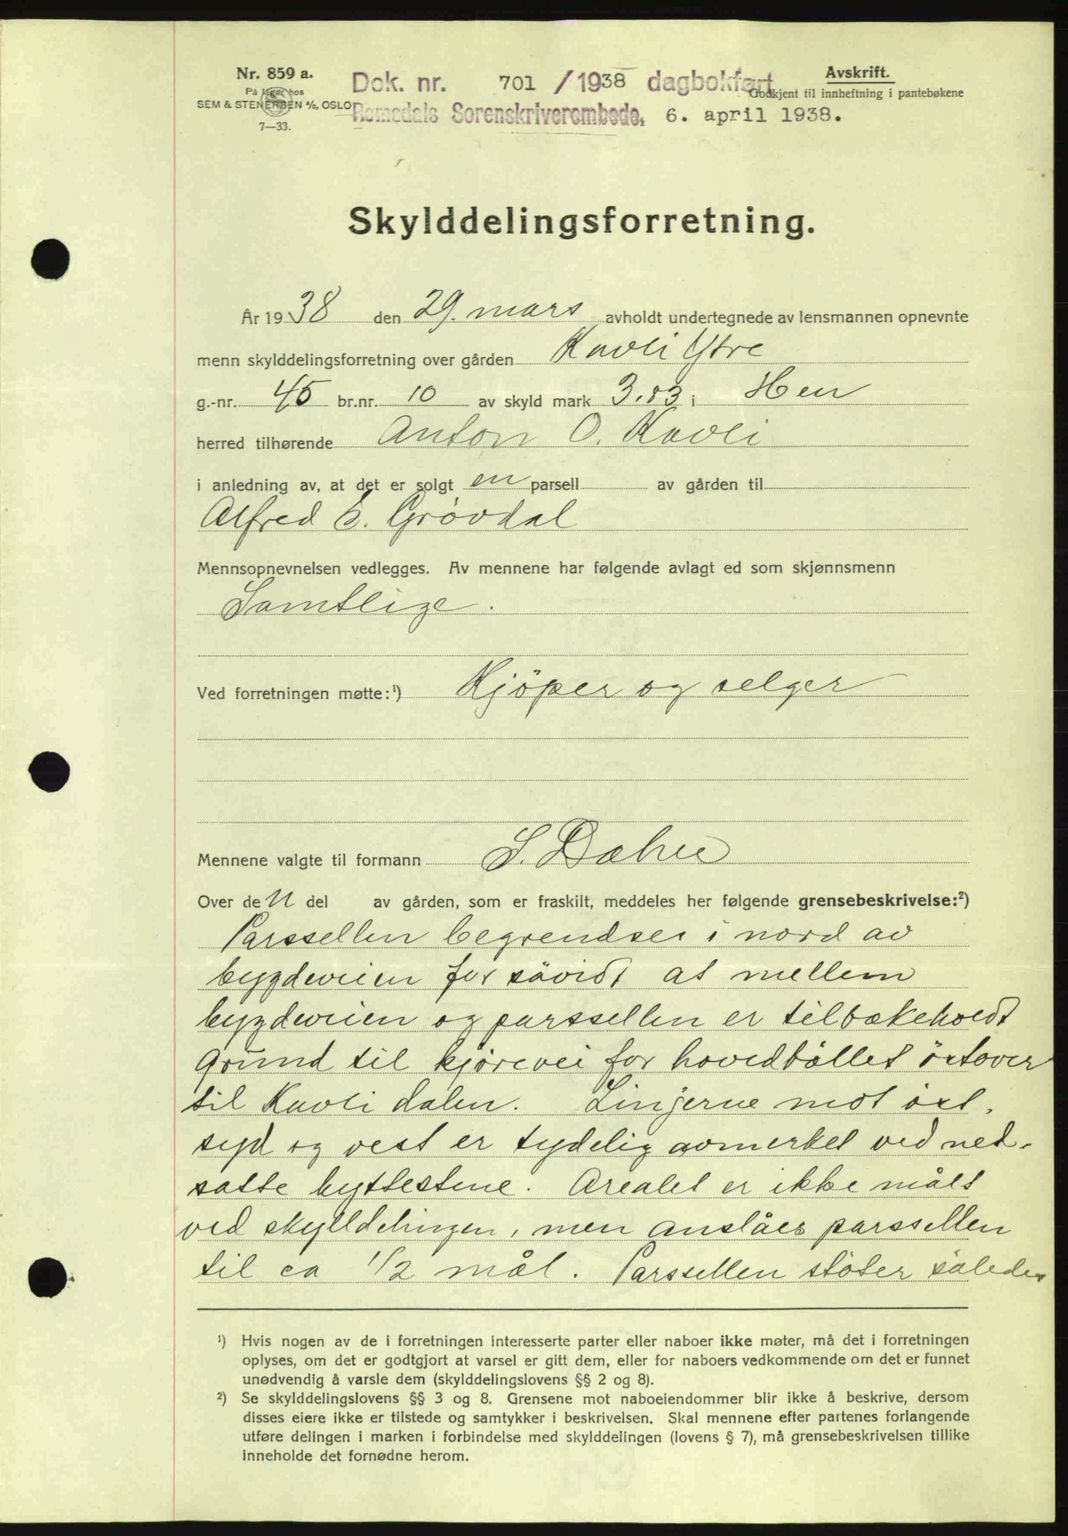 Nr. 859 a.
På lager hos
SEM & STENERSEN A/S, OSLO
7—33.
Dok. nr. 701 / 1938 dagbokført
Romsdals Sorenskriverembede, 6. april 1938.
Avskrift.
Godkjent til innheftning i pantebøkene
Skylddelingsforretning.
År 1938 den 29. mars avholdt undertegnede av lensmannen opnevnte
menn skylddelingsforretning over gården Kavli Ytre
g.-nr. 45 br.nr. 10 av skyld mark 3.83 i Hen
herred tilhørende Anton O. Kavli
i anledning av, at det er solgt en parsell av gården til
Alfred E. Grøvdal
Mennsopnevnelsen vedlegges. Av mennene har følgende avlagt ed som skjønnsmenn
Samtlige.
Ved forretningen møtte:¹) Kjöper og selger
Mennene valgte til formann S. Dahle
Over den del av gården, som er fraskilt, meddeles her følgende grensebeskrivelse:²)
Parssellen begrendses i nord av
bygdeveien for såvidt at mellem
bygdeveien og parssellen er tilbakeholdt
grund til kjörevei for hovedbøllet östover
til Kavli dalen. Linjerne mot öst,
syd og vest er tydelig avmerket ved ned-
satte byttestene. Arealet er ikke målt
ved skylddelingen, men anslåes parssellen
til ca 1/2 mål. Parssellen støter således
¹) Hvis nogen av de i forretningen interesserte parter eller naboer ikke møter, må det i forretningen
oplyses, om det er godtgjort at varsel er gitt dem, eller for naboers vedkommende om det er funnet
unødvendig å varsle dem (skylddelingslovens §§ 2 og 8).
²) Se skylddelingslovens §§ 3 og 8. Grensene mot naboeiendommer blir ikke å beskrive, dersom
disses eiere ikke er tilstede og samtykker i beskrivelsen. Skal mennene efter partenes forlangende
utføre delingen i marken i forbindelse med skylddelingen (lovens § 7), må grensebeskrivelsen tillike
inneholde det fornødne herom.